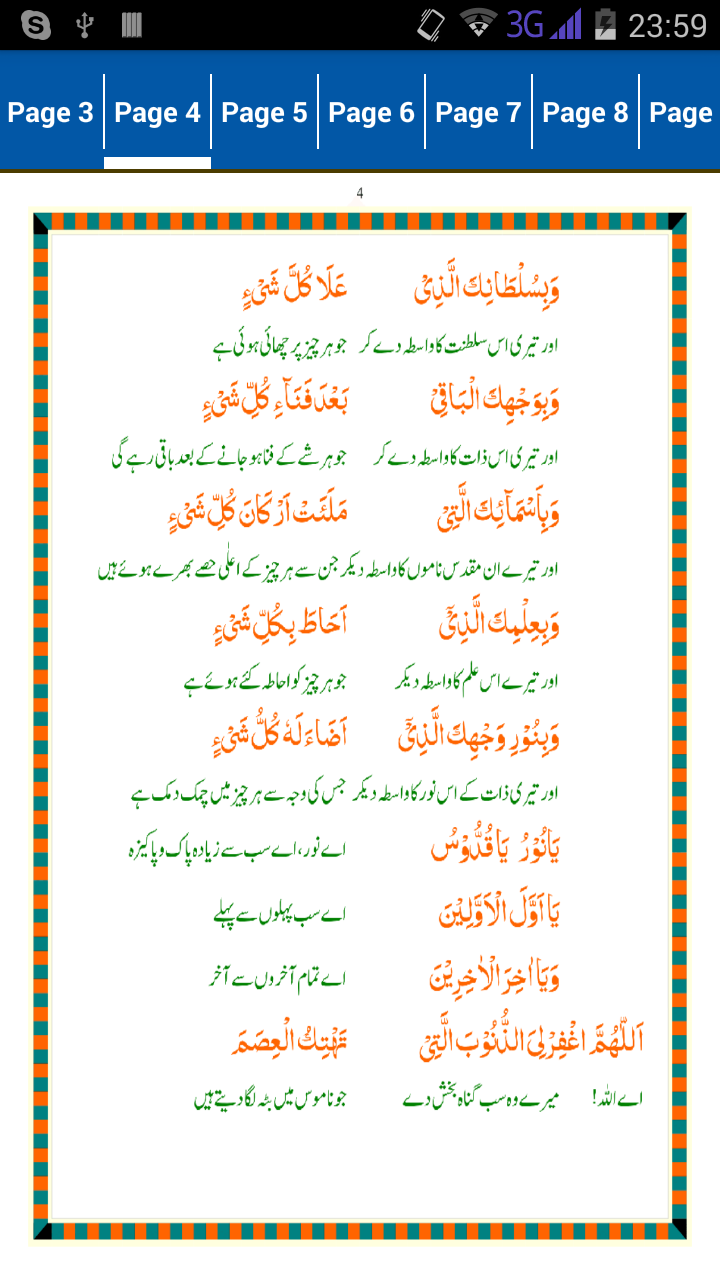 3G 23:59
Page 3 Page 4 Page 5 Page 6 Page 7 Page 8 Page
4
وَبِسُلْطَانِكَ الَّذِیْ عَلَا كُلَّ شَیْءٍ
اور تیری اس سلطنت کا واسطہ دے کر جو ہر چیز پر چھائی ہوئی ہے
وَبِوَجْهِكَ الْبَاقِیْ بَعْدَ فَنَآءِ كُلِّ شَیْءٍ
اور تیری اس ذات کا واسطہ دے کر جو ہر شے کے فنا ہو جانے کے بعد باقی رہے گی
وَبِاَسْمَآئِكَ الَّتِیْ مَلَئَتْ اَرْكَانَ كُلِّ شَیْءٍ
اور تیرے ان مقدس ناموں کا واسطہ دیکر جن سے ہر چیز کے اعلٰی حصے بھرے ہوئے ہیں
وَبِعِلْمِكَ الَّذِیْۤ اَحَاطَ بِكُلِّ شَیْءٍ
اور تیرے اس علم کا واسطہ دیکر جو ہر چیز کو احاطہ کئے ہوئے ہے
وَبِنُوْرِ وَجْهِكَ الَّذِیْۤ اَضَاءَ لَهٗ كُلُّ شَیْءٍ
اور تیری ذات کے اس نور کا واسطہ دیکر جس کی وجہ سے ہر چیز میں چمک دمک ہے
یَانُوْرُ یَاقُدُّوْسُ اے نور، اے سب سے زیادہ پاک و پاکیزہ
یَا اَوَّلَ الْاَوَّلِیْنَ اے سب پہلوں سے پہلے
وَیَا اٰخِرَ الْاٰخِرِیْنَ اے تمام آخروں سے آخر
اَللّٰهُمَّ اغْفِرْلِیَ الذُّنُوْبَ الَّتِیْ تَهْتِكُ الْعِصَمَ
اے اللہ! میرے وہ سب گناہ بخش دے جو ناموس میں بٹہ لگا دیتے ہیں